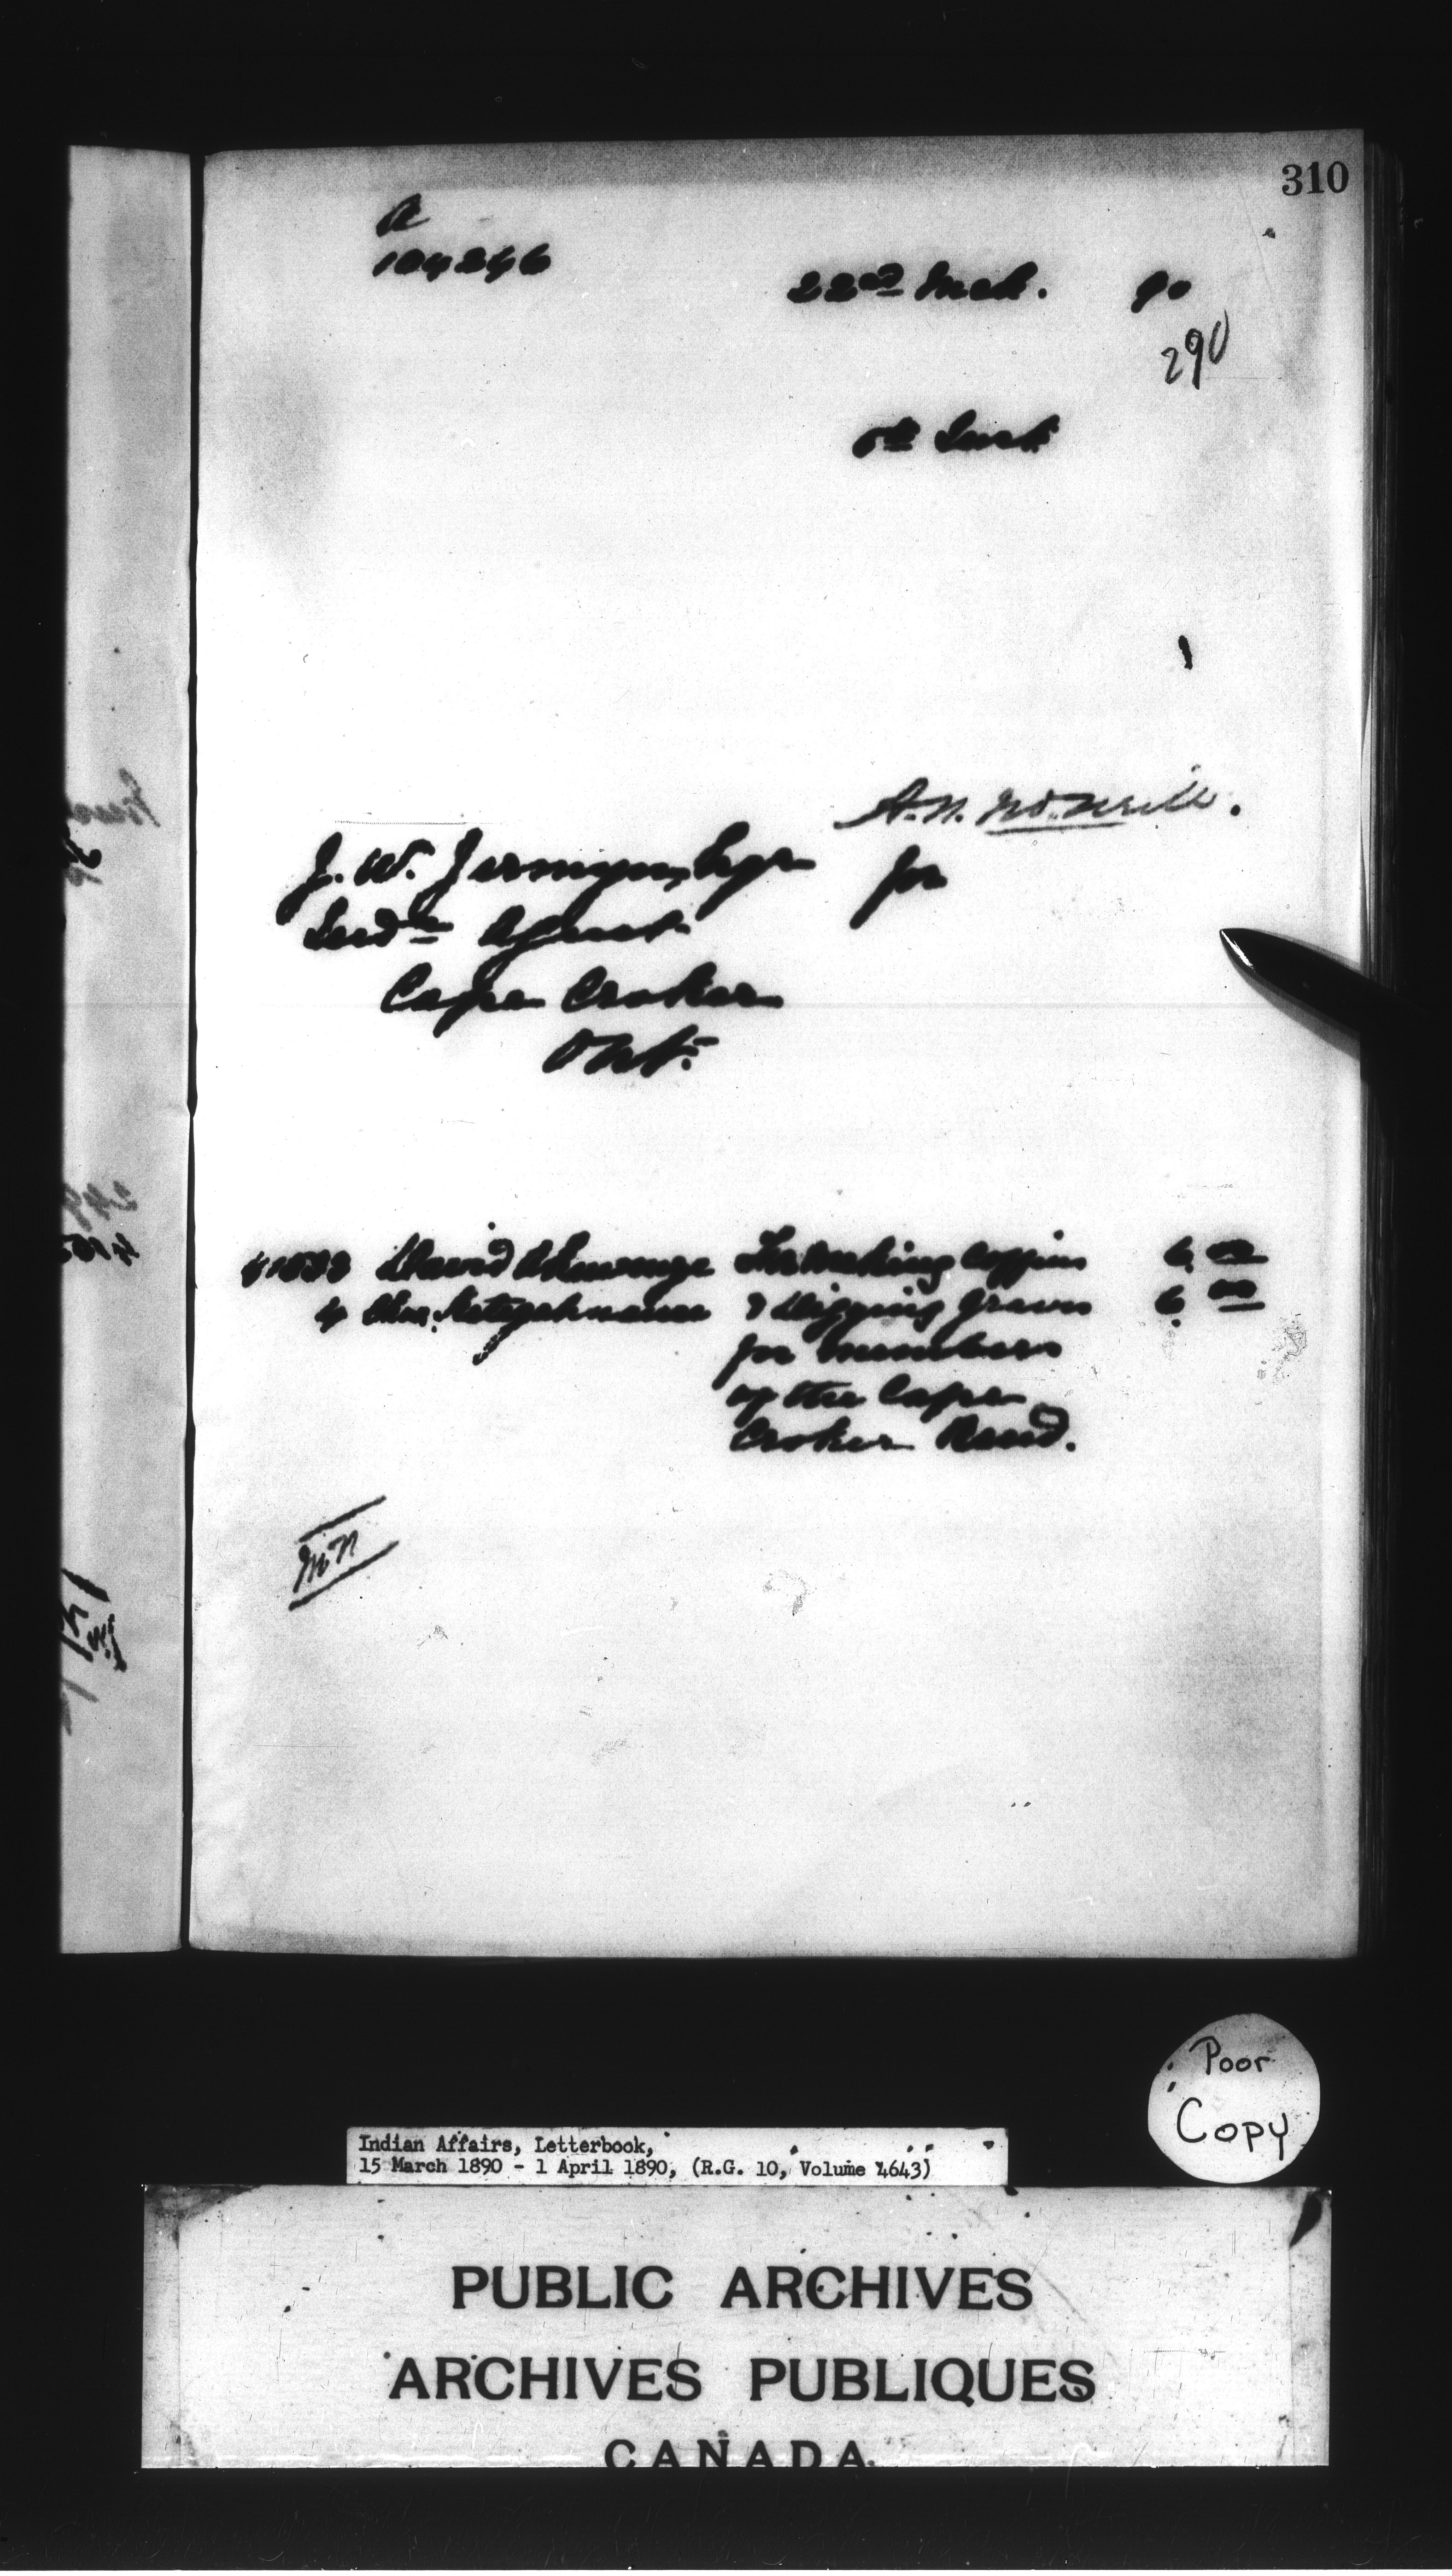 310
A
104246
22nd Mch. 90
290
6th Inst.
A.N. McNeill.
J. W. Jermyn, Esqr for
Indn Agent
Cape Croker
Ont.
David For making coffins 6.00
4 Chs. & digging graves 6.00
for members
of the Cape
Croker Band.
McN
Poor
Copy
Indian Affairs, Letterbook,
15 March 1890 - 1 April 1890, (R.G. 10, Volume 4643)
PUBLIC ARCHIVES
ARCHIVES PUBLIQUES
CANADA